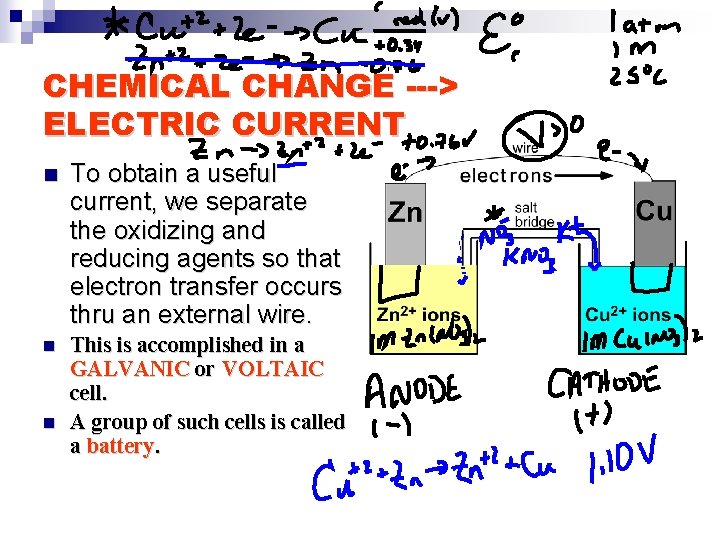 * Cu+2 + 2e- → Cu red (V) +0.34 Ԑ° 1 atm
Zn+2 + 2e- → Zn -0.76 1 M
25°C
CHEMICAL CHANGE --->
ELECTRIC CURRENT
Zn → Zn+2 + 2e- +0.76V
V > 0
wire
e- →
electrons
e-
■ To obtain a useful
current, we separate
the oxidizing and
reducing agents so that
electron transfer occurs
thru an external wire.
Zn
* salt
bridge
Cu
NO3- K+
KNO3
Zn2+ ions
Cu2+ ions
1M Zn(NO3)2
1M Cu(NO3)2
■ This is accomplished in a
GALVANIC or VOLTAIC
cell.
■ A group of such cells is called
a battery.
ANODE
(-)
CATHODE
(+)
Cu+2 + Zn → Zn+2 + Cu 1.10V